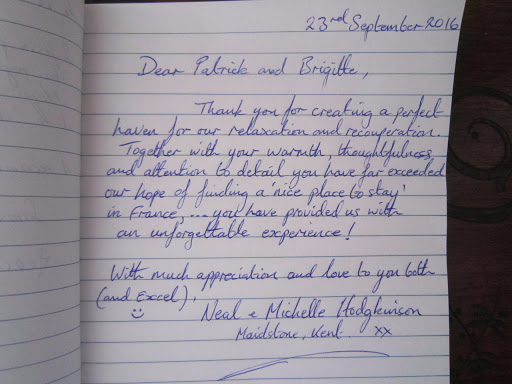 23rd September 2016
Dear Patrick and Brigitte,
Thank you for creating a perfect
haven for our relaxation and recuperation.
Together with your warmth, thoughtfulness,
and attention to detail you have far exceeded
our hope of finding a 'nice place to stay'
in France, ... you have provided us with
an unforgettable experience!
With much appreciation and love to you both
(and Excel),
Neal & Michelle Hodgkinson
Maidstone, Kent. xx